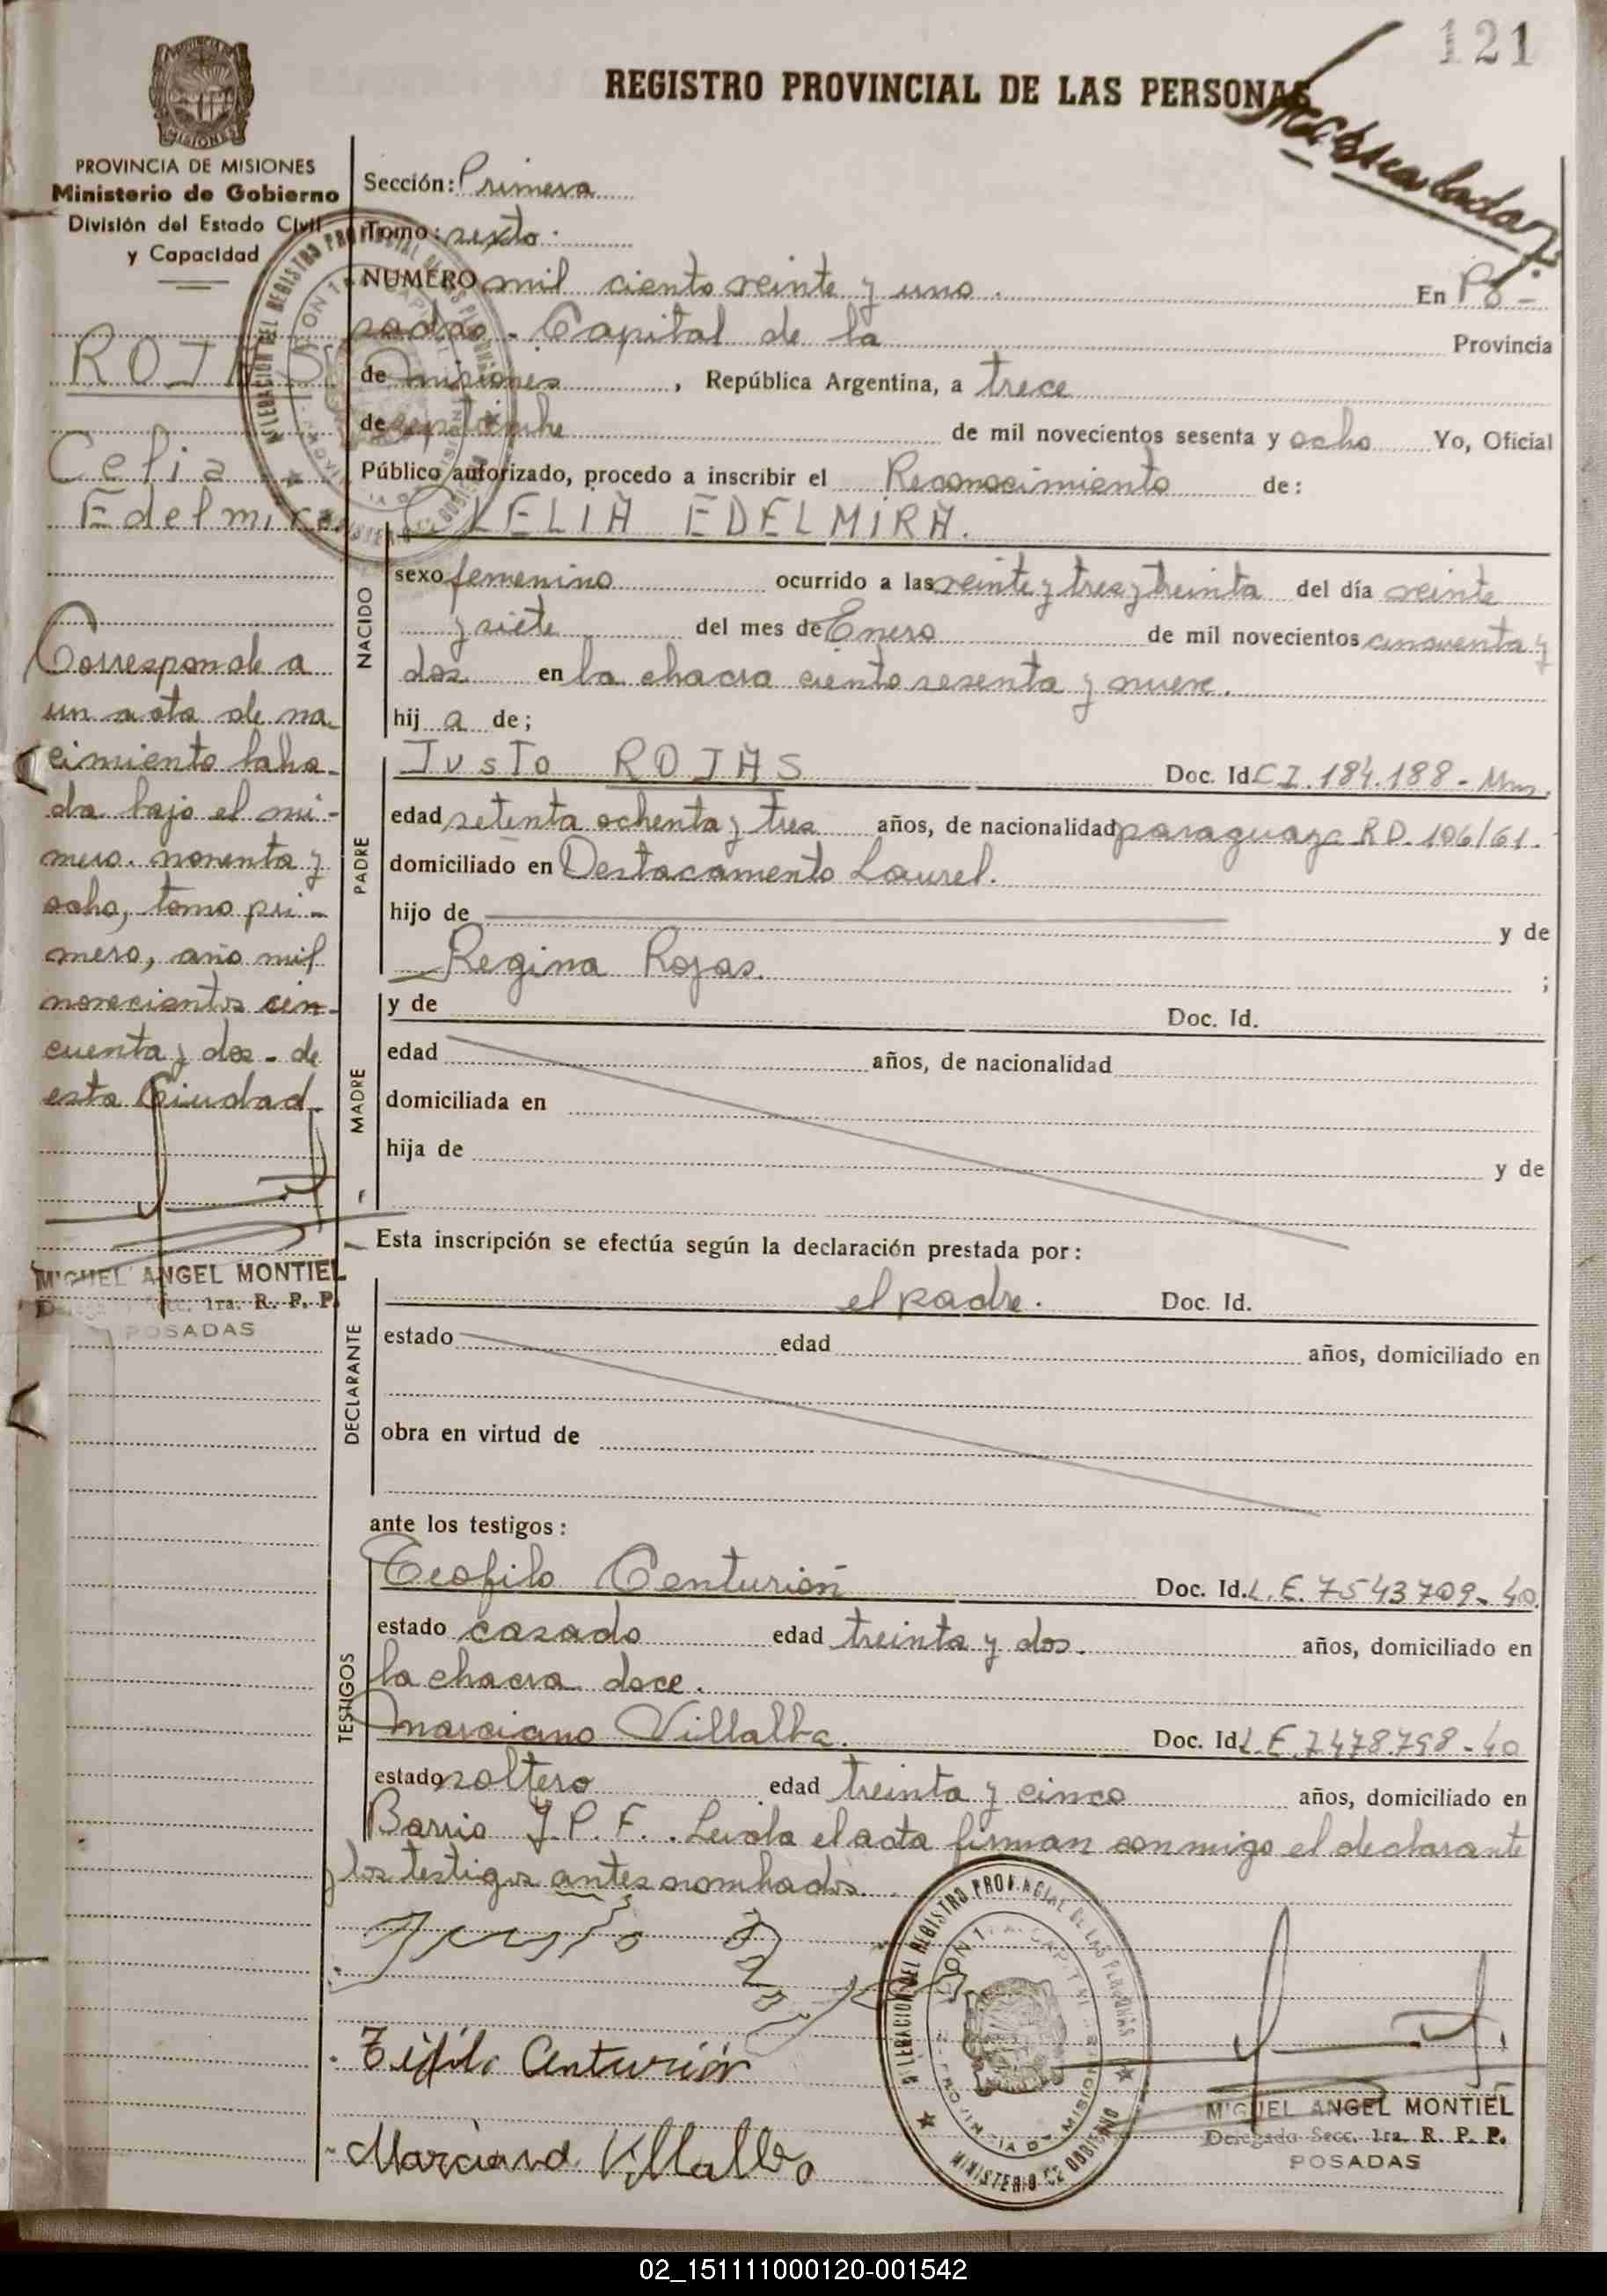 121
REGISTRO PROVINCIAL DE LAS PERSONAS
PROVINCIA DE MISIONES
Ministerio de Gobierno
División del Estado Civil
y Capacidad
Sección: Primera
Tomo: sexto.
NUMERO mil ciento veinte y uno. En Po-
sadas - Capital de la Provincia
de Misiones, República Argentina, a trece
de septiembre de mil novecientos sesenta y ocho Yo, Oficial
Público autorizado, procedo a inscribir el Reconocimiento de:
CELIA EDELMIRA.
ROJAS
Celia
Edelmira
NACIDO
sexo femenino ocurrido a las veinte y tres y treinta del día veinte
y siete del mes de Enero de mil novecientos cincuenta y
dos en la chacra ciento sesenta y nueve.
hij a de;
PADRE
Justo ROJAS Doc. Id. C I. 184.188 - Mnes.
edad setenta ochenta y tres años, de nacionalidad paraguaya R D. 106/61.
domiciliado en Destacamento Laurel.
hijo de y de
Regina Rojas. ;
MADRE
y de Doc. Id.
edad años, de nacionalidad
domiciliada en
hija de y de
Corresponde a
un acta de na-
cimiento laba-
da bajo el nú-
mero. noventa y
ocho, tomo pri-
mero, año mil
novecientos cin-
cuenta y dos - de
esta Ciudad.
MIGUEL ANGEL MONTIEL
Secc. 1ra. R. P. P.
POSADAS
Esta inscripción se efectúa según la declaración prestada por:
DECLARANTE
el padre. Doc. Id.
estado edad años, domiciliado en
obra en virtud de
ante los testigos:
TESTIGOS
Teofilo Centurión Doc. Id. L. E. 7543709-40.
estado casado edad treinta y dos. años, domiciliado en
la chacra doce.
Marciano Villalba. Doc. Id. L. E. 7478798-40
estado soltero edad treinta y cinco años, domiciliado en
Barrio Y. P. F.. Leida el acta firman conmigo el declarante
y los testigos antes nombrados.
Justo
Centurión
Marciano Villalba
DELEGACION DEL REGISTRO PROVINCIAL DE LAS PERSONAS
PROVINCIA DE MISIONES
MINISTERIO DE GOBIERNO
MIGUEL ANGEL MONTIEL
Delegado Secc. 1ra. R. P. P.
POSADAS
02_151111000120-001542